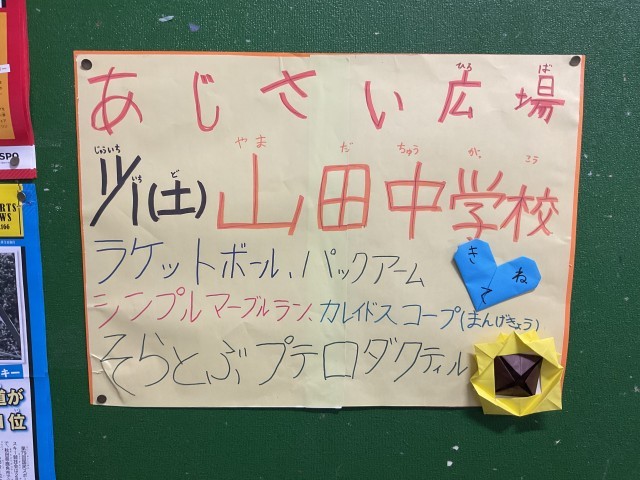 あじさい広場
ひろ ば
11/1(土)山田中学校
じゅういち いち ど やま だ ちゅう がっ こう
ラケットボール、パックアーム
シンプルマーブルラン、カレイドスコープ(まんげきょう)
そらとぶプテロダクティル
きてね
SPO
RTS
WS
キー
道が
位